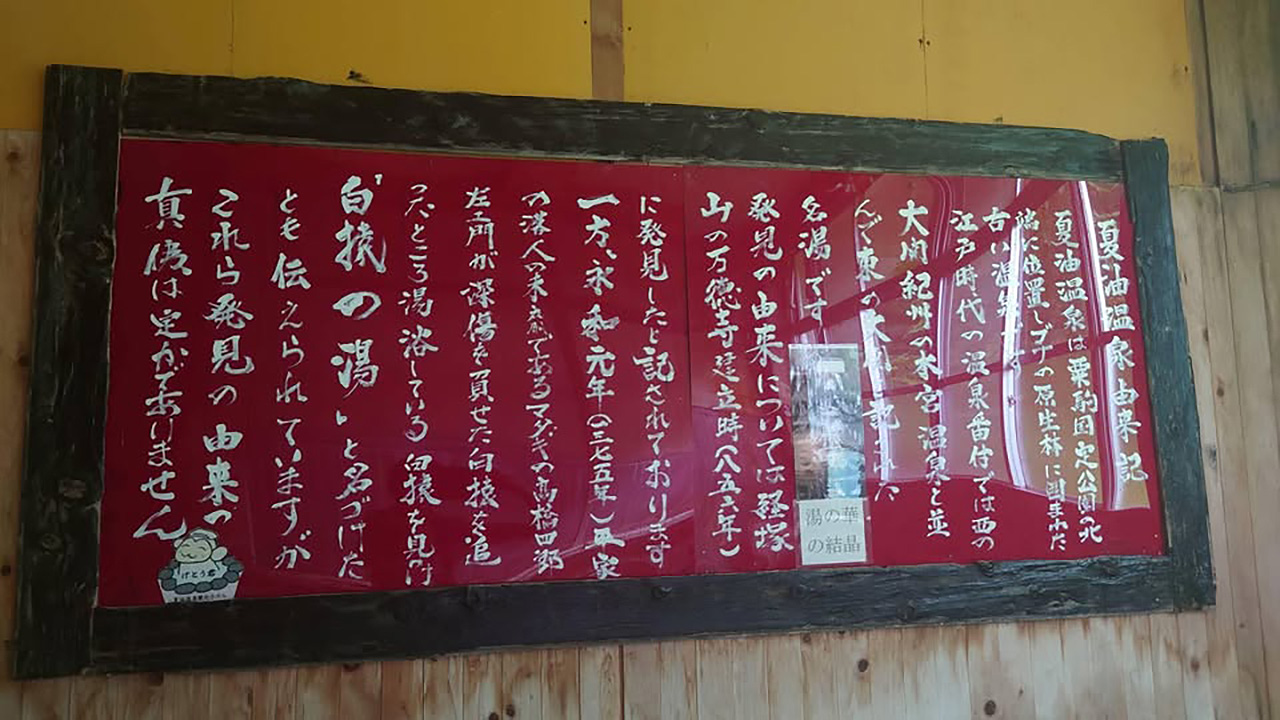 夏油温泉由来記
夏油温泉は栗駒国定公園の北
端に位置しブナの原生林に囲まれた
古い温泉
江戸時代の温泉番付では西の
大関紀州の本宮温泉と並
んで東の大関と記された
名湯です
発見の由来については経塚
山の万徳寺建立時(八五六年)
に発見したと記されております
一方、永和元年(一三七五年)平家
の落人の末裔であるマタギの高橋四郎
左エ門が深傷を負せた白猿を追
ったところ湯浴している白猿を見つけ
「白猿の湯」と名づけた
とも伝えられていますが
これら発見の由来の
真偽は定かでありません
湯の華
の結晶
げとう君